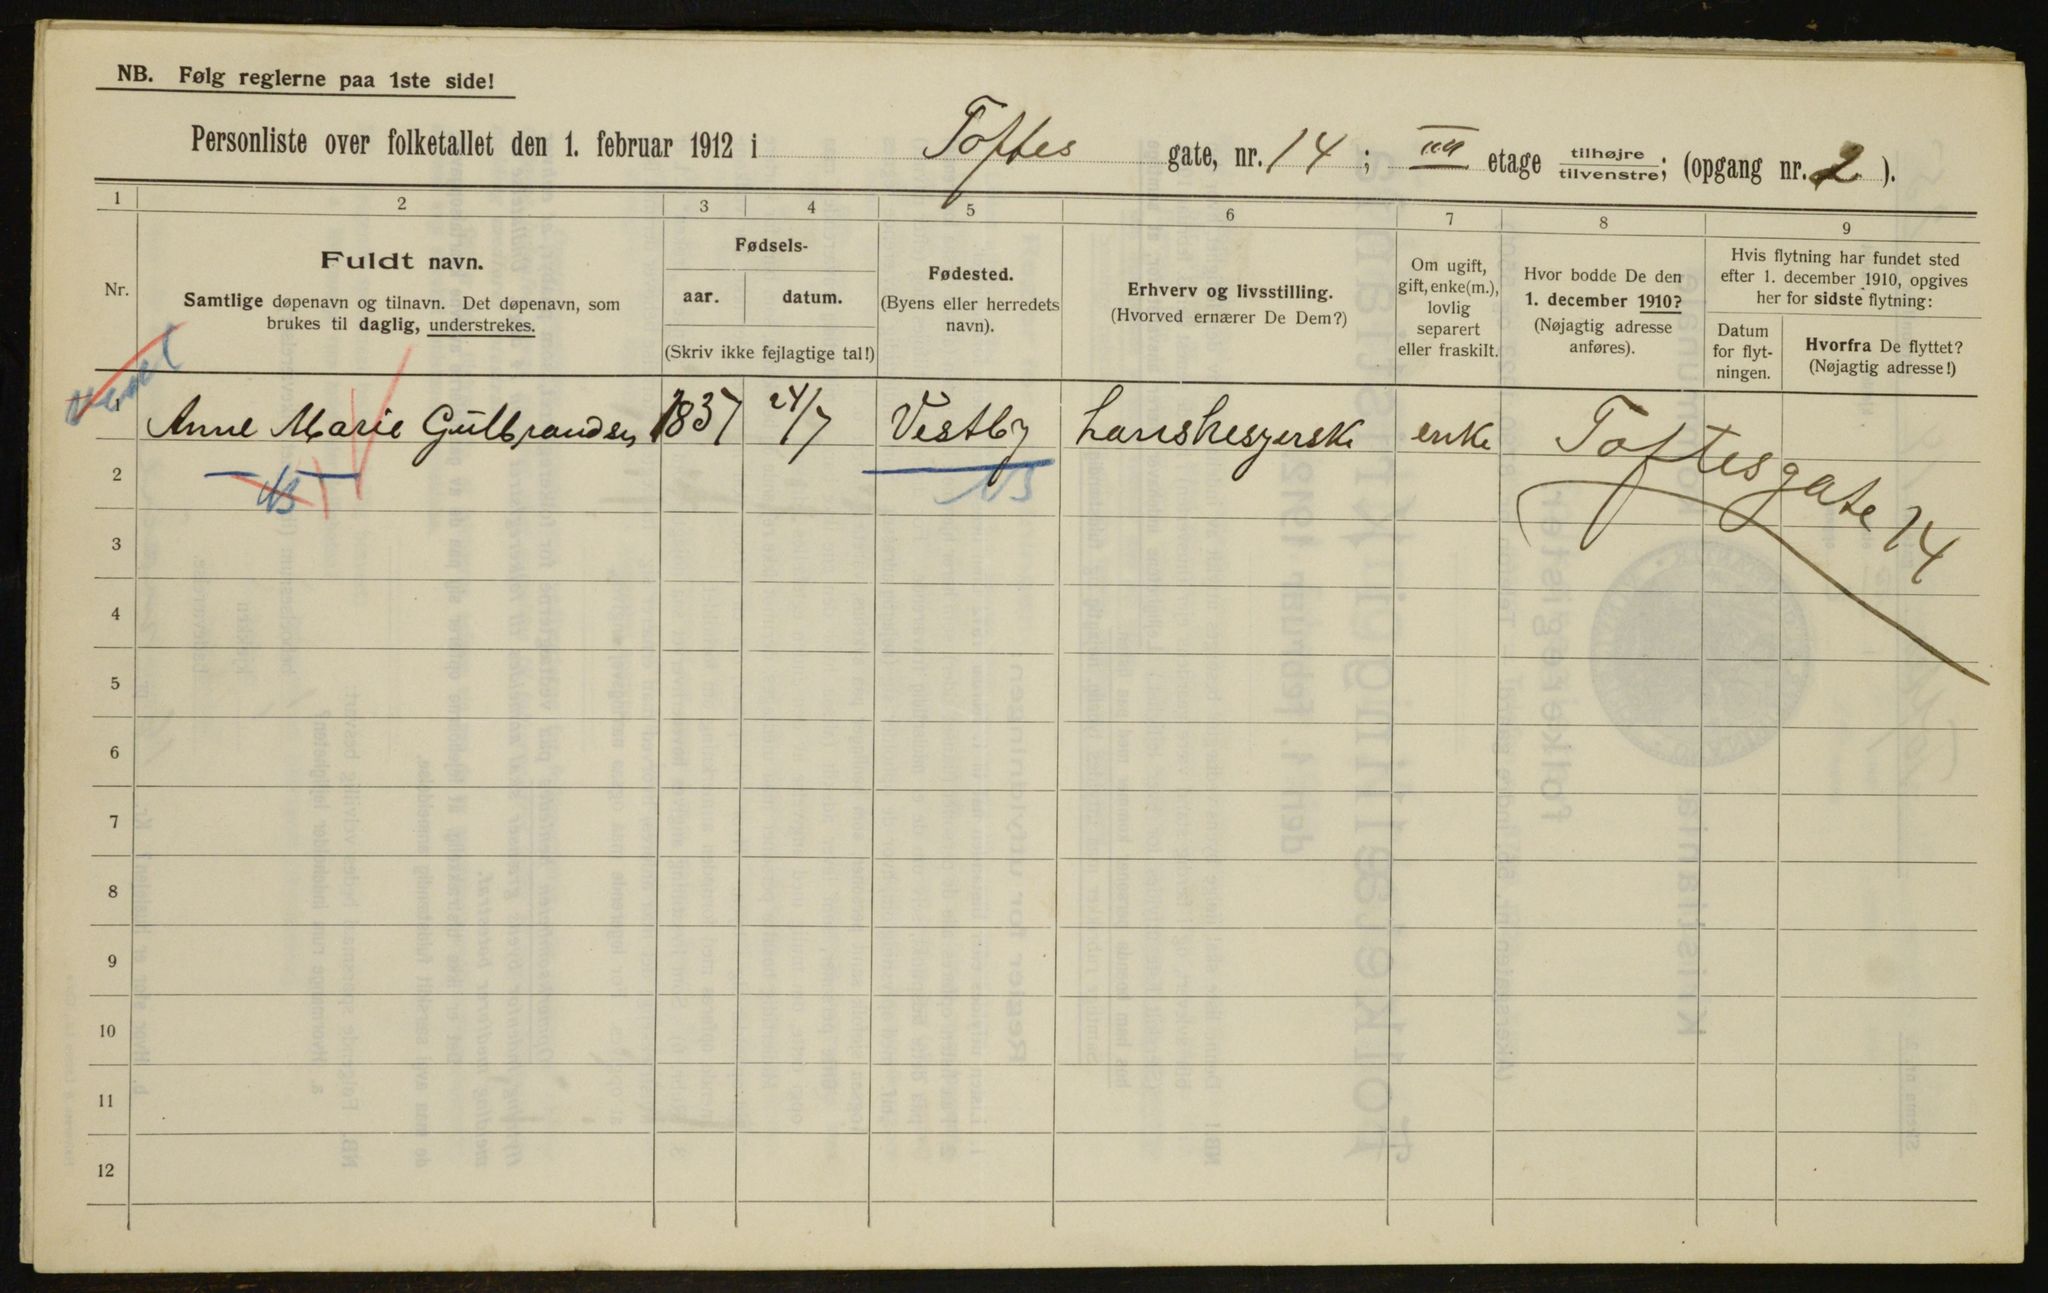 NB. Følg reglerne paa 1ste side!
Personliste over folketallet den 1. februar 1912 i Toftes gate, nr. 14; III etage tilhøjre tilvenstre; (opgang nr. 2).
1 2 3 4 5 6 7 8 9
Nr.
Fuldt navn.
Samtlige døpenavn og tilnavn. Det døpenavn, som
brukes til daglig, understrekes.
Fødsels-
aar. datum.
(Skriv ikke fejlagtige tal!)
Fødested.
(Byens eller herredets
navn).
Erhverv og livsstilling.
(Hvorved ernærer De Dem?)
Om ugift,
gift, enke(m.),
lovlig
separert
eller fraskilt.
Hvor bodde De den
1. december 1910?
(Nøjagtig adresse
anføres).
Hvis flytning har fundet sted
efter 1. december 1910, opgives
her for sidste flytning:
Datum
for flyt-
ningen.
Hvorfra De flyttet?
(Nøjagtig adresse!)
1 Anne Marie Gulbrandsen 1837 24/7 Vestby enke Toftesgate 14
2
3
4
5
6
7
8
9
10
11
12